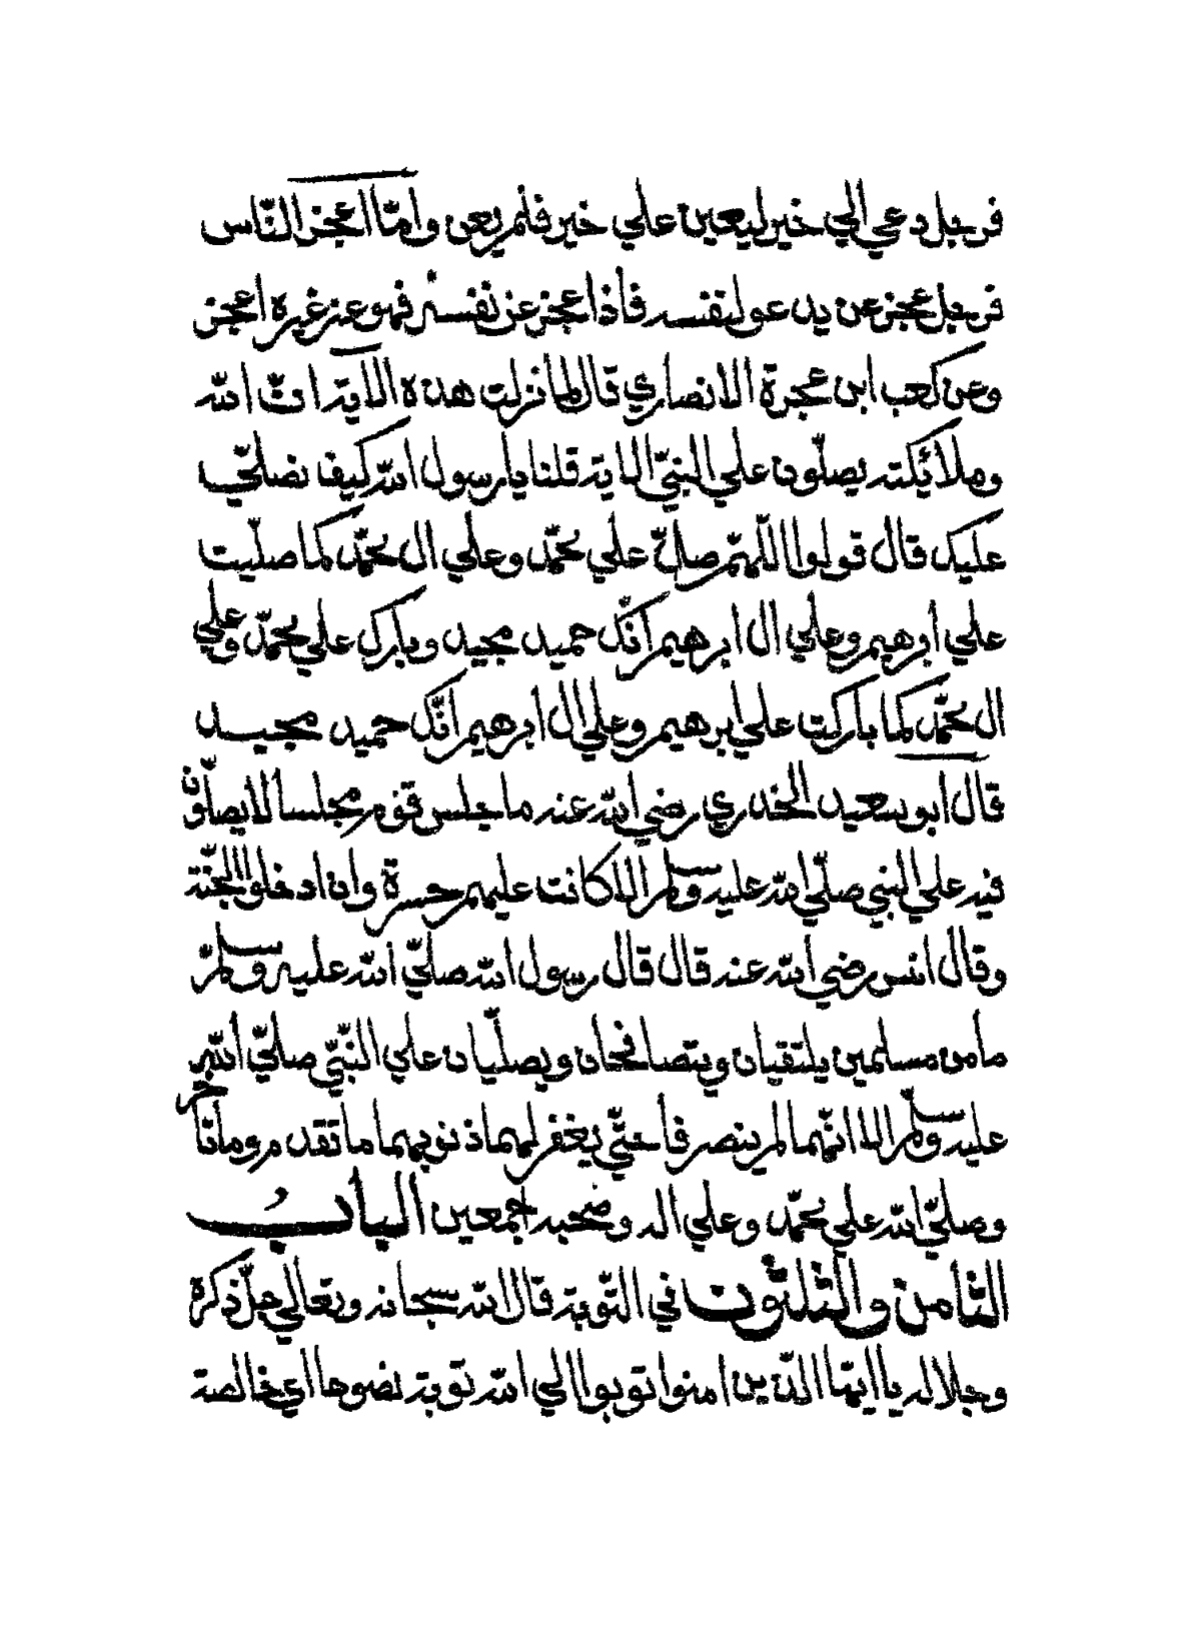 فرجل دعي الي خير ليعين علي خير فلم يعن واما اعجز الناس
فرجل عجز عن يدعو لنفسه فاذا عجز عن نفسه فهو عن غيره اعجز
وعن كعب ابن عجرة الانصاري قال لما نزلت هذه الاية ان الله
وملائكته يصلّون علي النبيّ الاية قلنا يا رسول الله كيف نصلّي
عليك قال قولوا اللّهمّ صلّ علي محمّد وعلي ال محمّد كما صلّيت
علي ابرهيم وعلي ال ابرهيم انّك حميد مجيد وبارك علي محمّد وعلي
ال محمّد كما باركت علي ابرهيم وعلي ال ابرهيم انّك حميد مجيد
قال ابو سعيد الخدري رضي الله عنه ما جلس قوم مجلسا لا يصلّون
فيه علي النبي صلّي الله عليه وسلم الا كانت عليهم حسرة وان ادخلوا الجنّة
وقال انس رضي الله عنه قال قال رسول الله صلّي الله عليه وسلّم
ما من مسلمين يلتقيان ويتصافحان ويصلّيان علي النّبيّ صلّي الله
عليه وسلّم الا انّهما لم ينصرفا حتّي يغفر لهما ذنوبهما ما تقدم وما تاخر
وصلّي الله علي محمّد وعلي اله وصحبه اجمعين البابُ
الثّامن والثّلثون في التّوبة قال الله سبحانه وتعالي جلّ ذكره
وجلاله يا ايّها الذّين امنوا توبوا الي الله توبة نصوحا اي خالصة